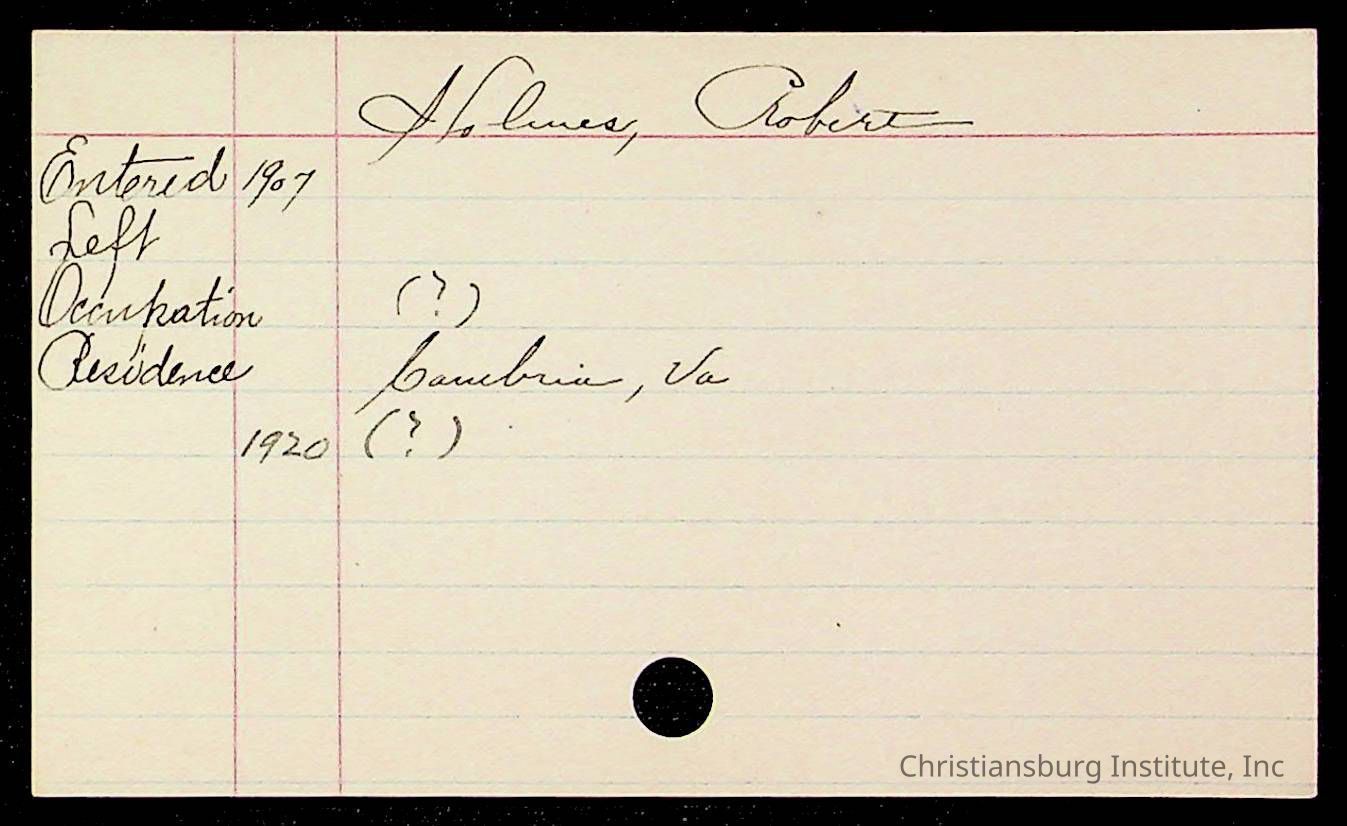 Holmes, Robert
Entered 1907
Left
Occupation (?)
Residence Cambria, Va
1920 (?)
Christiansburg Institute, Inc